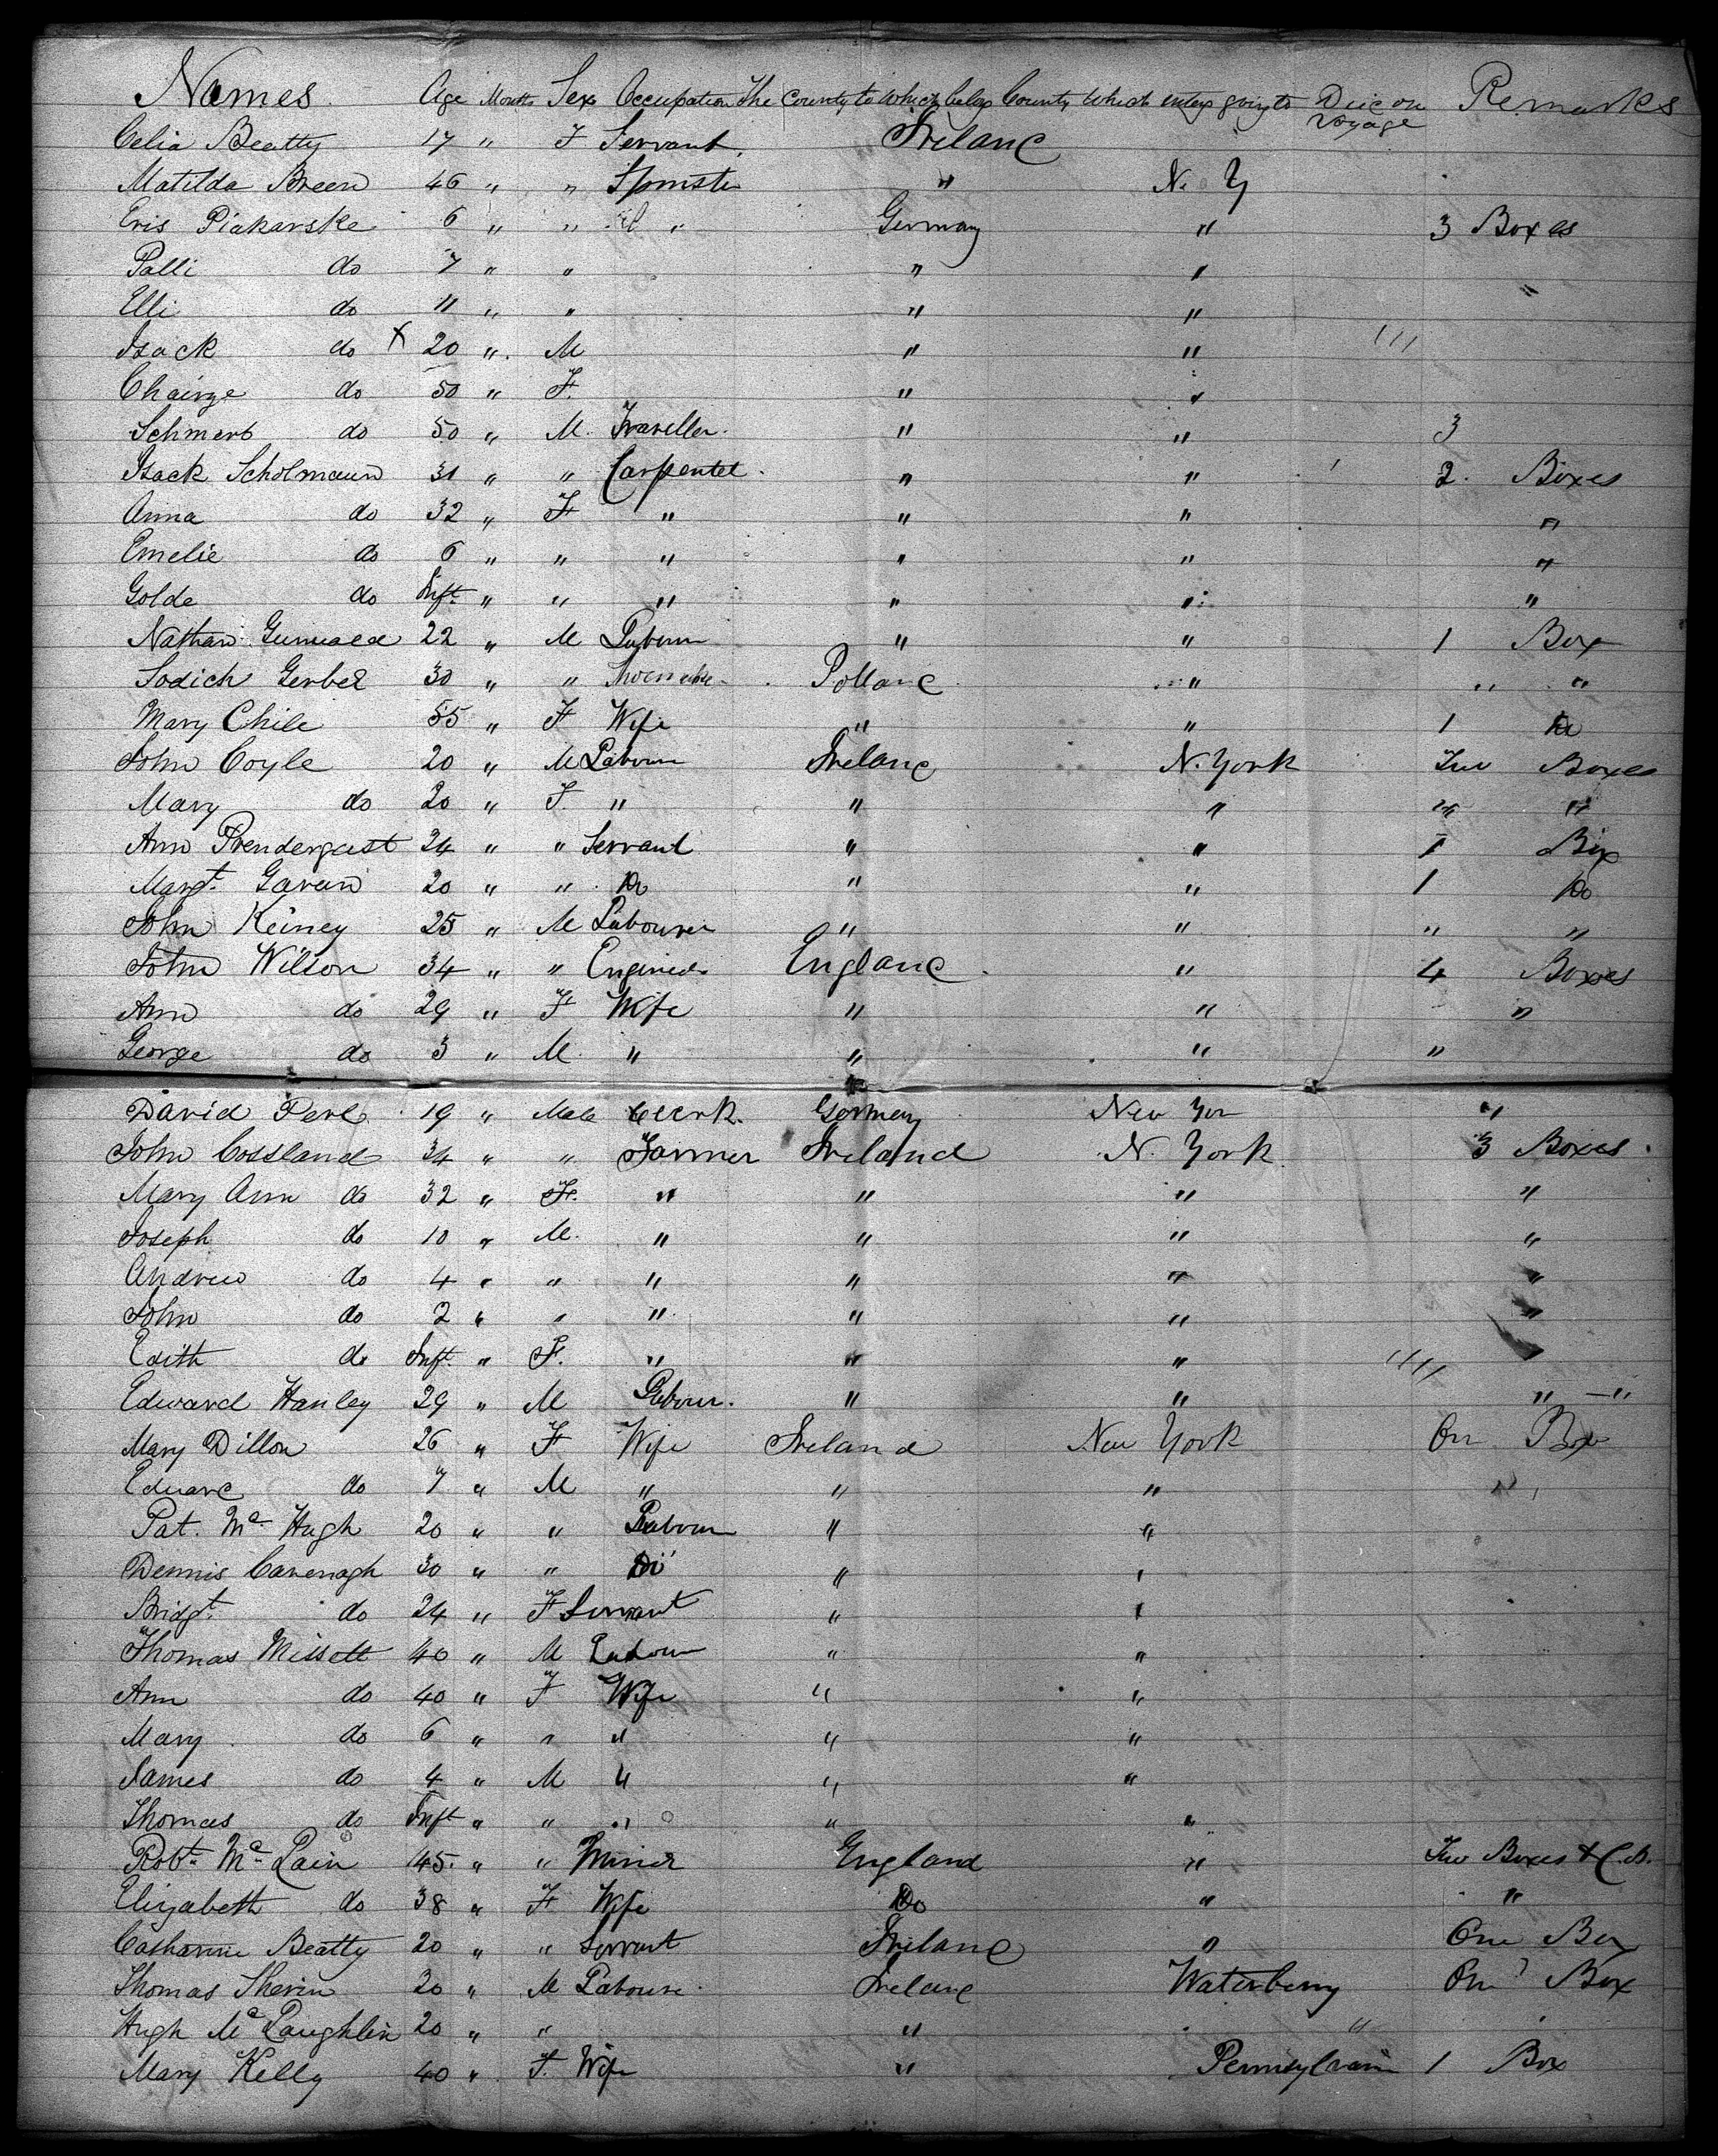 Names. Age Months Sex Occupation The County to which belong County which intey going to Die on Voyage Remarks
Celia Beatty 17 " F Servant. Ireland
Matilda Breen 46 " " Spinster " N. Y
Eris Piakarske 6 " " " Germany " 3 Boxes
Palli do 7 " " " "
Elli do 11 " " " "
Isack do X 20 " M " "
Chairge do 50 " F. " "
Schmerb do 50 " M. Traveller. " " 3
Isack Scholmann 31 " " Carpenter. " " 2. Boxes
Anna do 32 " F " " " "
Emelie do 6 " " " " " "
Golde do Inft. " " " " " "
Nathan Gunwald 22 " M Labour " " 1 Box
Sodich Gerbel 30 " " Polland " " "
Mary Chile 55 " F Wife " " 1 Do
John Coyle 20 " M Labour Ireland N. York Two Boxes
Mary do 20 " F. " " " " "
Ann Prendergast 24 " " Servant " " 1 Box
Margt. Gavan 20 " " Do " " 1 Do
John Keiney 25 " M Labourer " " " "
John Wilson 34 " " Engineer England " 4 Boxes
Ann do 29 " F Wife " " "
George do 3 " M. " " " "
David Perl 19 " Male Clerk. Germany New Yor "
John Cossland 34 " " Farmer Ireland N. York. 3 Boxes.
Mary Ann do 32 " F. " " " "
Joseph do 10 " M. " " " "
Andrew do 4 " " " " " "
John do 2 " " " " " "
Edith do Inft. " F. " " "
Edward Hanley 29 " M Labour. " " " — "
Mary Dillon 26 " F Wife Ireland New York On Box
Edward do 7 " M " " " "
Pat. Mc Hugh 20 " " Labour " "
Dennis Cavenagh 30 " " Do " "
Bridgt. do 24 " F Servant " "
Thomas Missett 40 " M Labour " "
Ann do 40 " F Wife " "
Mary do 6 " " " " "
James do 4 " M " " "
Thomas do Inft " " " " "
Robt. Mc Lain 45. " " Miner England " Two Boxes & C.B.
Elizabeth do 38 " F Wife Do " "
Catharine Beatty 20 " " Servant Ireland " One Box
Thomas Shevin 20 " M Laboure. Ireland Waterberry On Box
Hugh Mc Laughlin 20 " " " "
Mary Kelly 40 " F. Wife " Pennsylvain 1 Box